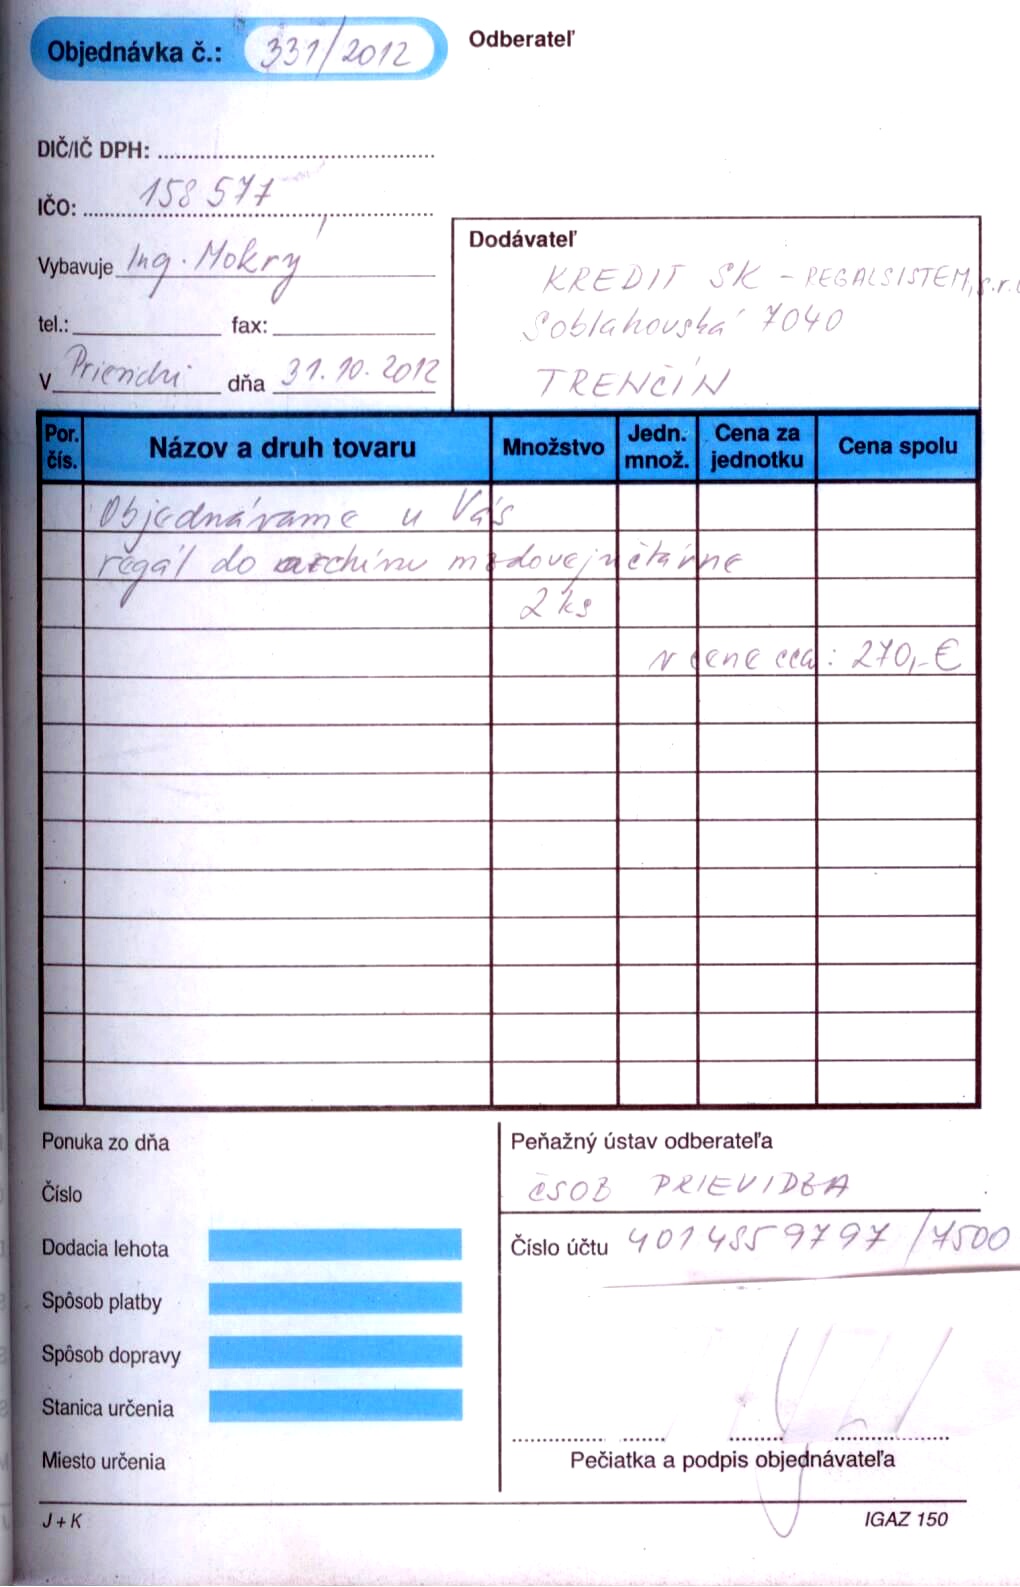 Objednávka č.: 331/2012
Odberateľ
DIČ/IČ DPH:
IČO: 158 577
Vybavuje Ing. Mokrý
tel.: fax:
V Prievidzi dňa 31.10.2012
Dodávateľ
KREDIT SK - REGALSISTEM, s.r.o
Soblahovská 7040
TRENČÍN
Por. čís. Názov a druh tovaru Množstvo Jedn. množ. Cena za jednotku Cena spolu
Objednávame u Vás
regál do archívu mzdovej učtárne
2 ks
v cene cca: 270,-€
Ponuka zo dňa
Číslo
Dodacia lehota
Spôsob platby
Spôsob dopravy
Stanica určenia
Miesto určenia
Peňažný ústav odberateľa
ČSOB PRIEVIDZA
Číslo účtu 4014859797/7500
Pečiatka a podpis objednávateľa
J + K
IGAZ 150